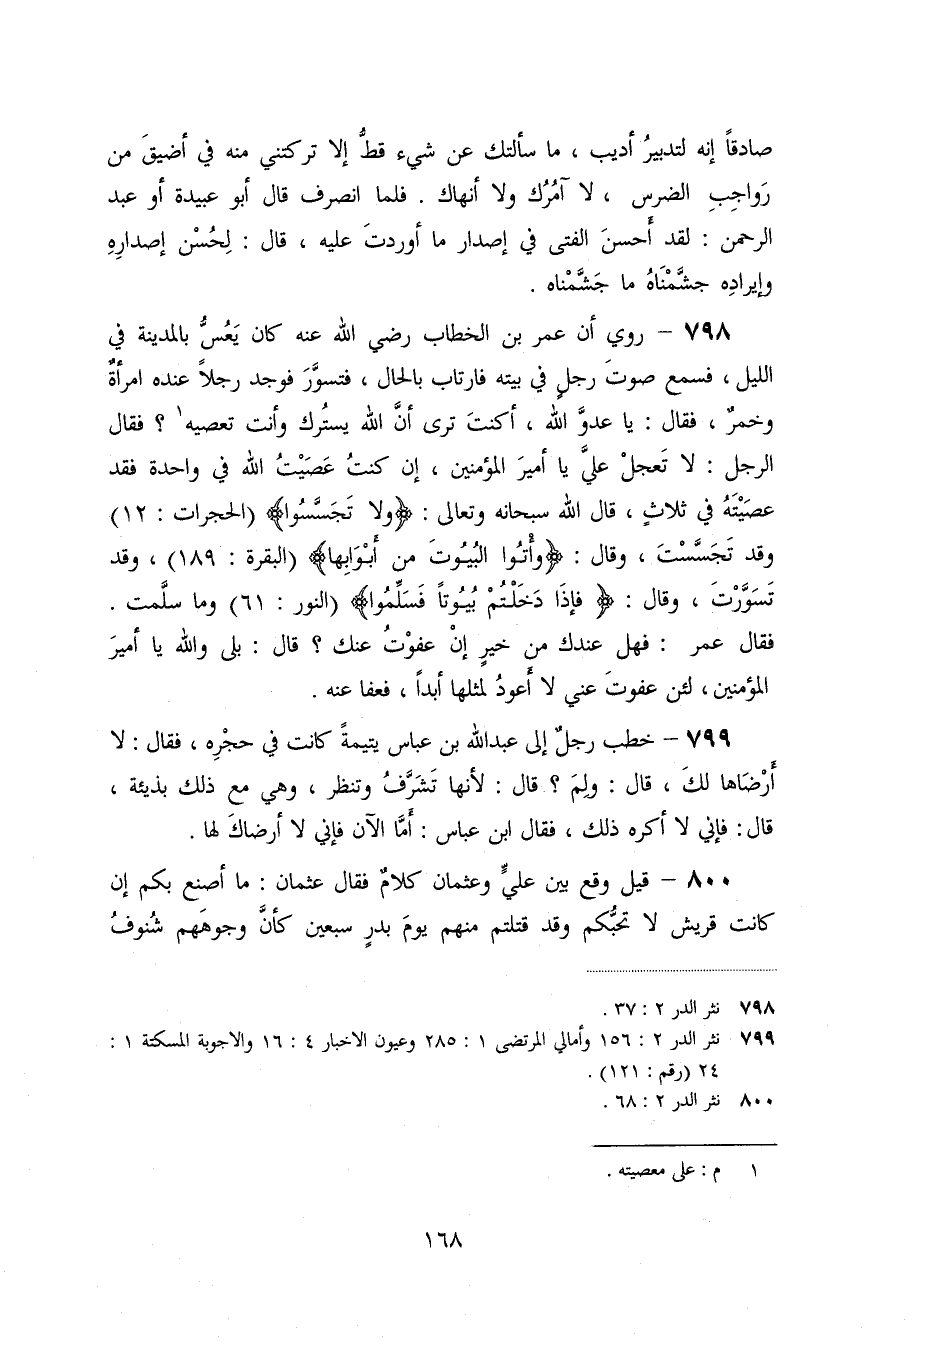 صادقاً إنه لتدبيرُ أديب ، ما سألتك عن شيء قطُّ إلا تركتني منه في أضيقَ من
رَواجِبِ الضرس ، لا آمُرُك ولا أنهاك . فلما انصرف قال أبو عبيدة أو عبد
الرحمن : لقد أَحسنَ الفتى في إصدار ما أوردتَ عليه ، قال : لِحُسْن إصدارِهِ
وإيرادِه جشَّمْنَاهُ ما جَشَّمْناه .
٧٩٨ – روي أن عمر بن الخطاب رضي الله عنه كان يَعُسُّ بالمدينة في
الليل ، فسمع صوتَ رجلٍ في بيته فارتاب بالحال ، فتسوَّرَ فوجد رجلاً عنده امرأةٌ
وخمرٌ ، فقال : يا عدوَّ الله ، أكنتَ ترى أنَّ الله يستُرك وأنت تعصيه١ ؟ فقال
الرجل : لا تَعجلْ عليَّ يا أميرَ المؤمنين ، إن كنتُ عَصَيْتُ الله في واحدة فقد
عصَيْتَهُ في ثلاثٍ ، قال الله سبحانه وتعالى : ﴿ولا تَجَسَّسُوا﴾ (الحجرات : ١٢)
وقد تَجَسَّسْتَ ، وقال : ﴿وأْتُوا البُيُوتَ من أَبْوَابِها﴾ (البقرة : ١٨٩) ، وقد
تَسَوَّرْتَ ، وقال : ﴿ فإذَا دَخَلْتُمْ بيُوتاً فَسَلِّمُوا﴾ (النور : ٦١) وما سلَّمت .
فقال عمر : فهل عندك من خيرٍ إنْ عفوْتُ عنك ؟ قال : بلى والله يا أميرَ
المؤمنين ، لئن عفوتَ عني لا أَعودُ لمثلها أبداً ، فعفا عنه .
٧٩٩ – خطب رجلٌ إلى عبدالله بن عباس يتيمةً كانت في حجْرِه ، فقال : لا
أَرْضَاها لكَ ، قال : ولِمَ ؟ قال : لأنها تَشَرَّفُ وتنظر ، وهي مع ذلك بذيئة ،
قال : فإني لا أكره ذلك ، فقال ابن عباس : أَمَّا الآن فإني لا أرضاكَ لها .
٨٠٠ – قيل وقع بين عليٍّ وعثمان كلامٌ فقال عثمان : ما أصنع بكم إن
كانت قريش لا تحبُّكم وقد قتلتم منهم يومَ بدرٍ سبعين كأنَّ وجوهَهم شُنوفُ
٧٩٨ نثر الدر ٢ : ٣٧ .
٧٩٩ نثر الدر ٢ : ١٥٦ وأمالي المرتضى ١ : ٢٨٥ وعيون الاخبار ٤ : ١٦ والاجوبة المسكتة ١ :
٢٤ (رقم : ١٢١) .
٨٠٠ نثر الدر ٢ : ٦٨ .
١ م : على معصيته .
١٦٨